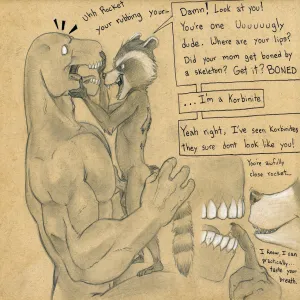 Uhh Rocket
your rubbing your...
Damn! Look at you!
You're one Uuuuuugly
dude. Where are your lips?
Did your mom get boned by
a skeleton? Get it? BONED
...I'm a Korbinite
Yeah right, I've seen Korbinites
they sure dont look like you!
You're awfully
close rocket...
I know, I can
practically...
taste your
breath.